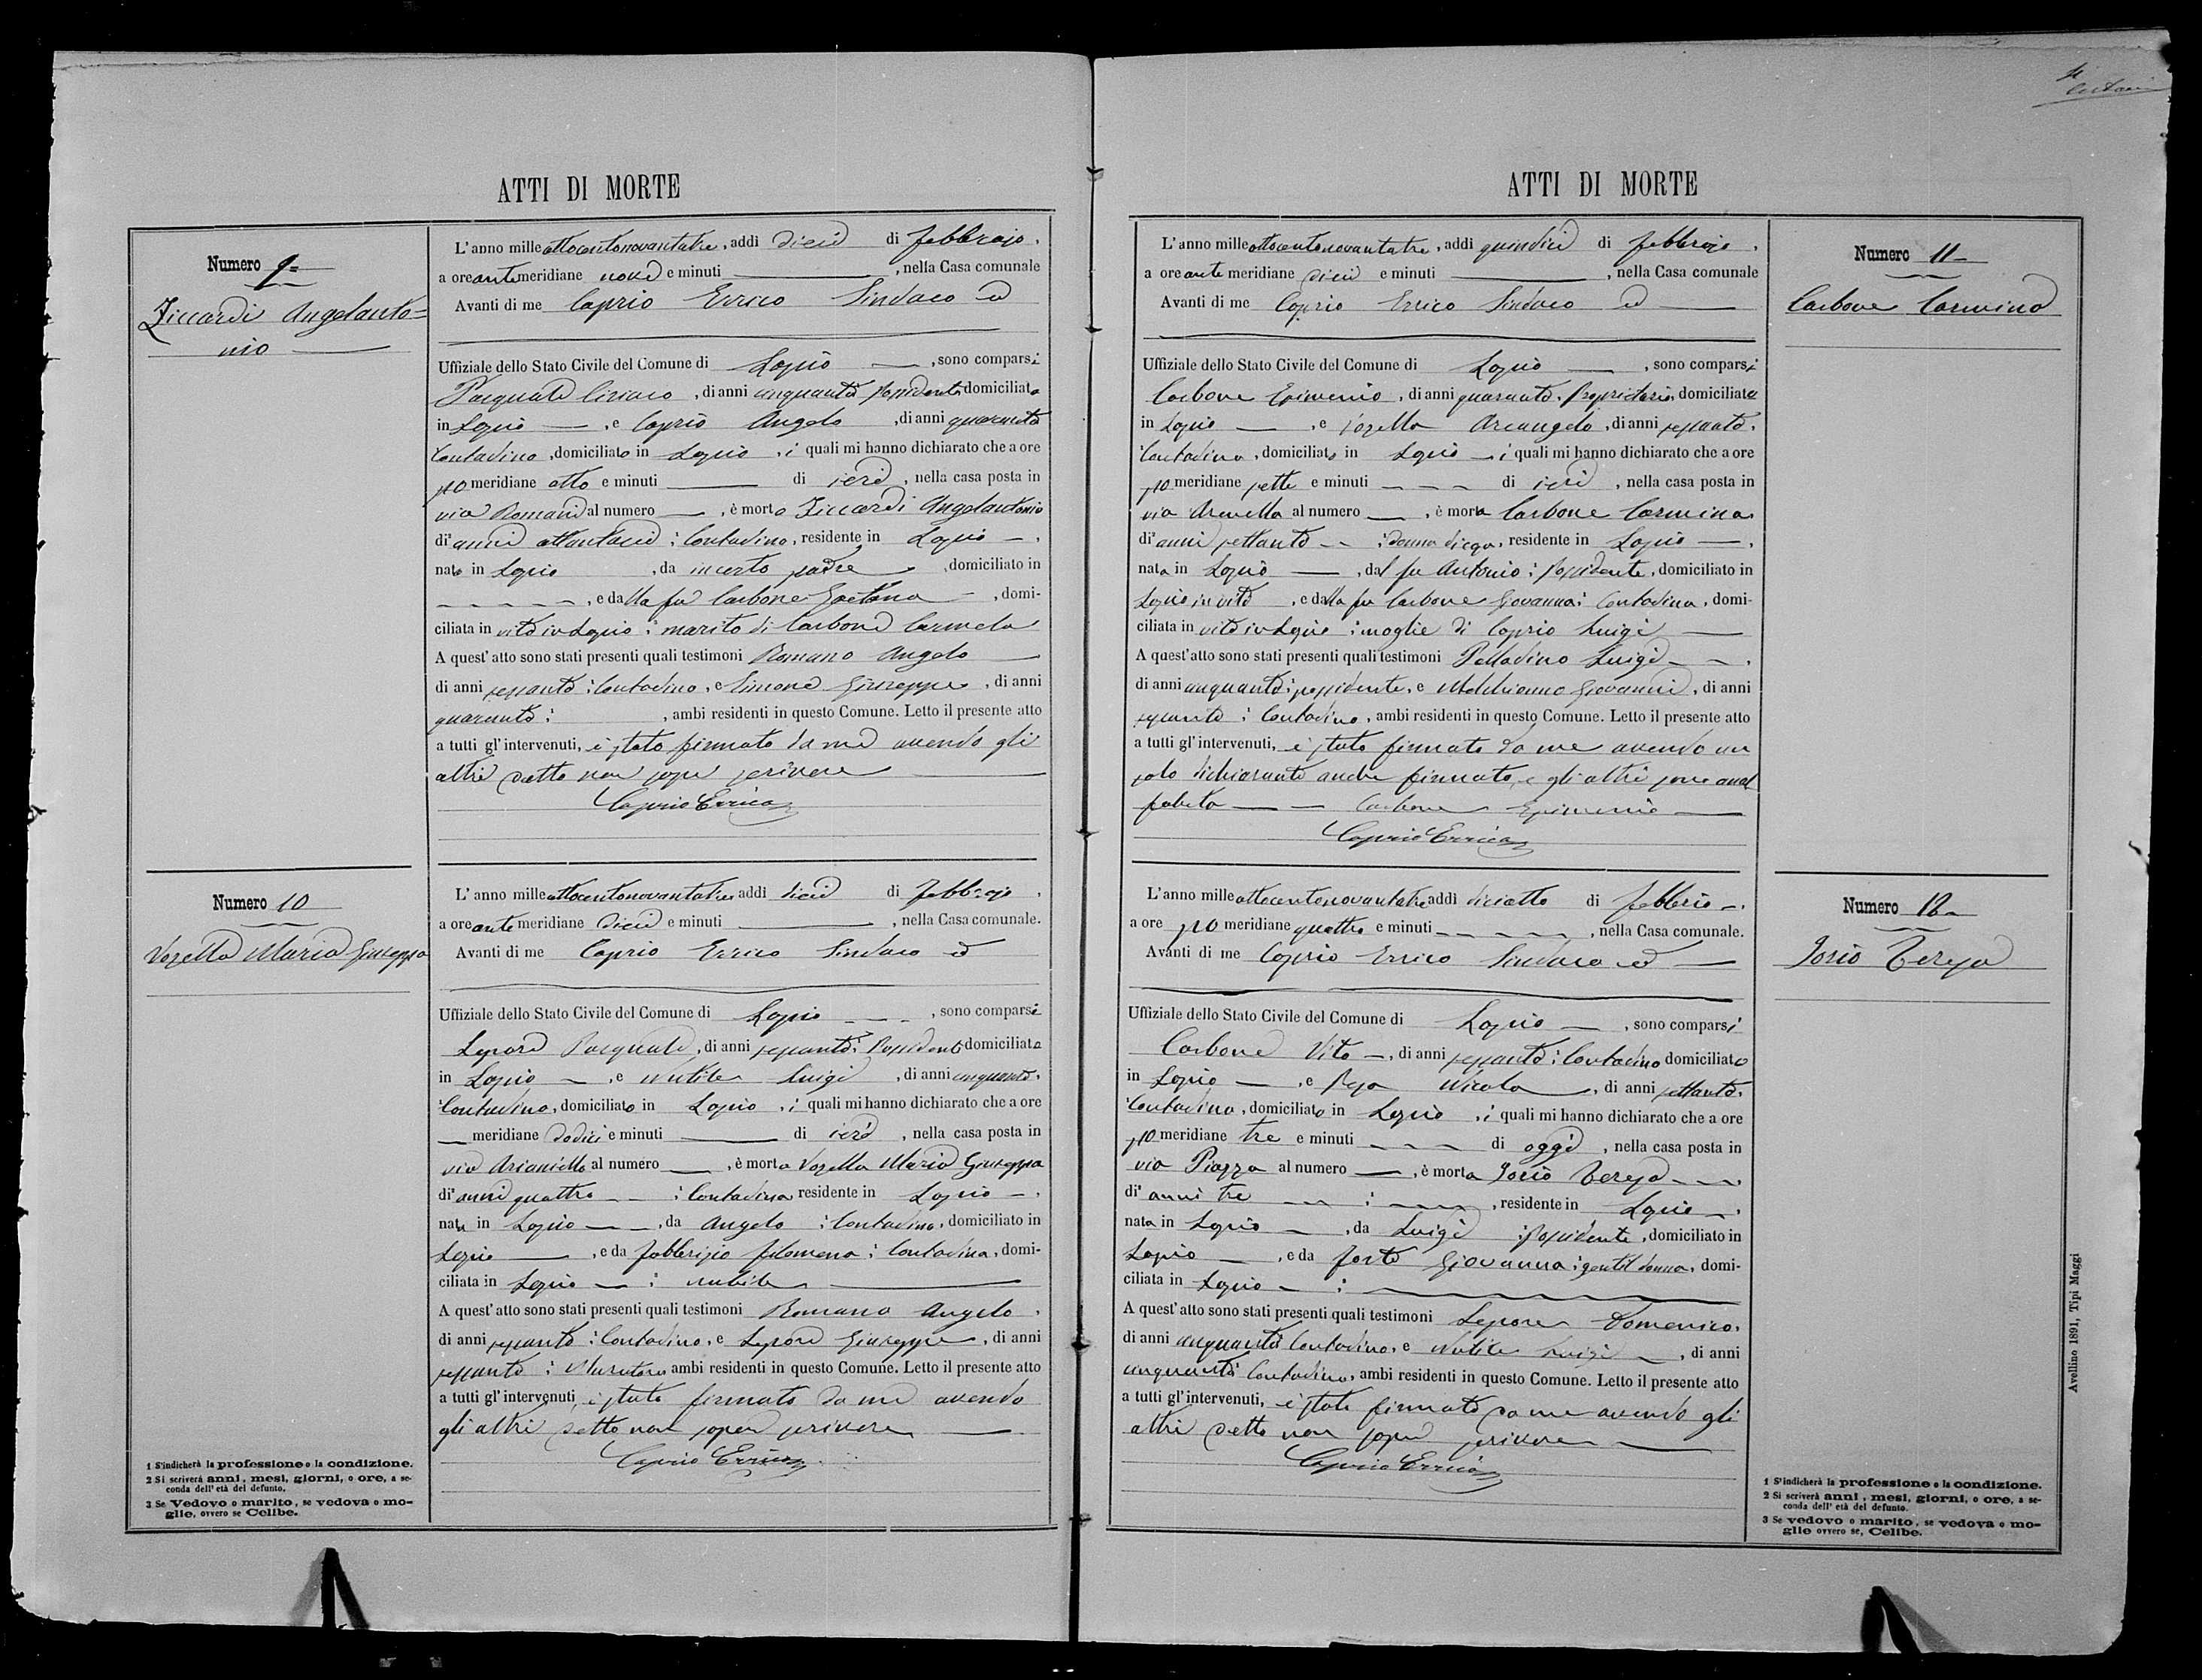 ATTI DI MORTE
Numero 9=
Ziccardi Angelanto=
nio
L'anno mille ottocentonovantatre, addi dieci di febbrajo,
a ore antemeridiane nove e minuti — , nella Casa comunale
Avanti di me Caprio Errico Sindaco ed
Uffiziale dello Stato Civile del Comune di Lapio — , sono comparsi
Pasquale Ciriaco, di anni cinquanta possidente domiciliato
in Lapio — , e Caprio Angelo , di anni quaranta
Contadino, domiciliato in Lapio , i quali mi hanno dichiarato che a ore
po meridiane otto e minuti — di ieri , nella casa posta in
via Romani al numero — , è morto Ziccardi Angelantonio
di anni ottantasei ; Contadino, residente in Lapio — ,
nato in Lapio , da incerto padre , domiciliato in
— , e dalla fu Carbone Gaetana — , domi-
ciliata in vita in Lapio ; marito di Carbone Carmela
A quest' atto sono stati presenti quali testimoni Romano Angelo —
di anni sessanta ; Contadino, e Simone Giuseppe , di anni
quaranta ; , ambi residenti in questo Comune. Letto il presente atto
a tutti gl' intervenuti, è stato firmato da me avendo gli
altri detto non saper scrivere —
Caprio Errico
Numero 10
Vozella Maria Giuseppa
L' anno mille ottocentonovantatre, addi dieci di febbrajo ,
a ore ante meridiane dieci e minuti — , nella Casa comunale.
Avanti di me Caprio Errico Sindaco ed
Uffiziale dello Stato Civile del Comune di Lapio — , sono comparsi
Lepore Pasquale, di anni sessanta ; Possidente domiciliato
in Lapio — , e Nutile Luigi , di anni cinquanta,
Contadino, domiciliato in Lapio , i quali mi hanno dichiarato che a ore
— meridiane dodici e minuti — di ieri , nella casa posta in
via Arianiello al numero — , è morta Vozella Maria Giuseppa
di anni quattro — ; Contadina residente in Lapio — ,
nata in Lapio — , da Angelo ; Contadino, domiciliato in
Lapio — , e da Fabbrizio Filomena ; Contadina, domi-
ciliata in Lapio — ; nubile —
A quest' atto sono stati presenti quali testimoni Romano Angelo ,
di anni sessanta ; Contadino, e Lepore Giuseppe , di anni
sessanta ; Muratore, ambi residenti in questo Comune. Letto il presente atto
a tutti gl' intervenuti, è stato firmato da me avendo
gli altri detto non saper scrivere —
Caprio Errico
1 S'indicherà la professione o la condizione.
2 Si scriverà anni, mesi, giorni, o ore, a se-
conda dell' età del defunto.
3 Se Vedovo o marito, se vedova o mo-
glie, ovvero se Celibe.
ATTI DI MORTE
Numero 11
Carbone Carmina
L' anno mille ottocentonovantatre, addi quindici di febbrajo ,
a ore ante meridiane dieci e minuti — , nella Casa comunale
Avanti di me Caprio Errico Sindaco ed —
Uffiziale dello Stato Civile del Comune di Lapio — , sono comparsi
Carbone Epimenio, di anni quaranta, Proprietario, domiciliato
in Lapio — , e Vozella Arcangelo, di anni sessanta,
Contadino, domiciliato in Lapio — , i quali mi hanno dichiarato che a ore
po meridiane sette e minuti — di ieri , nella casa posta in
via Arenella al numero — , è morta Carbone Carmina
di anni settanta — ; donna di casa, residente in Lapio — ,
nata in Lapio — , dal fu Antonio ; Possidente, domiciliato in
Lapio in vita , e dalla fu Carbone Giovanna ; Contadina, domi-
ciliata in vita in Lapio ; moglie di Caprio Luigi —
A quest' atto sono stati presenti quali testimoni Palladino Luigi — ,
di anni cinquanta ; possidente, e Giovanni, di anni
sessanta ; Contadino, ambi residenti in questo Comune. Letto il presente atto
a tutti gl' intervenuti, è stato firmato da me avendo un
solo dichiarante anche firmato, e gli altri sono anal
fabeta — Carbone Epimenio —
Caprio Errico
Numero 12
Iosiò Teresa
L' anno mille ottocentonovantatre addi diciotto di febbrio — ,
a ore po meridiane quattro e minuti — , nella Casa comunale.
Avanti di me Caprio Errico Sindaco ed —
Uffiziale dello Stato Civile del Comune di Lapio — , sono comparsi
Carbone Vito — , di anni sessanta ; Contadino domiciliato
in Lapio — , e Pepa Nicola , di anni settanta,
Contadino, domiciliato in Lapio , i quali mi hanno dichiarato che a ore
po meridiane tre e minuti — di oggi , nella casa posta in
via Piazza al numero — , è morta Iosiò Teresa —
di anni tre — ; — , residente in Lapio — ,
nata in Lapio — , da Luigi ; Possidente, domiciliato in
Lapio — , e da Forte Giovanna ; gentildonna, domi-
ciliata in Lapio — ; —
A quest' atto sono stati presenti quali testimoni Lepore Domenico,
di anni cinquanta Contadino, e Nutile Luigi — , di anni
cinquanta Contadino, ambi residenti in questo Comune. Letto il presente atto
a tutti gl' intervenuti, è stato firmato da me avendo gli
altri detto non saper scrivere —
Caprio Errico
1 S'indicherà la professione o la condizione.
2 Si scriverà anni, mesi, giorni, o ore, a se-
conda dell' età del defunto.
3 Se vedovo o marito, se vedova o mo-
glie ovvero se, Celibe.
Avellino 1891, Tipi Maggi